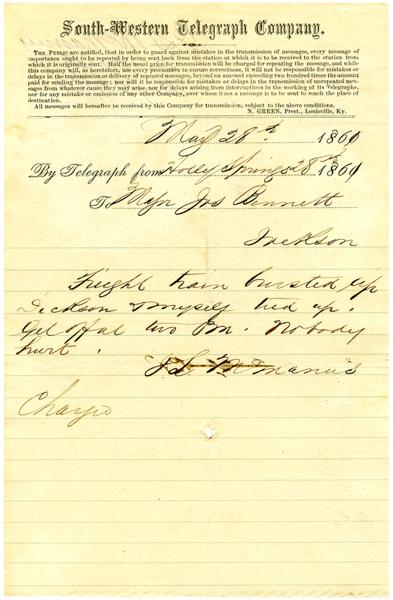 South-Western Telegraph Company.
THE PUBLIC are notified, that in order to guard against mistakes in the transmission of messages, every message of
importance ought to be repeated by being sent back from the station at which it is to be received to the station from
which it is originally sent. Half the usual price for transmission will be charged for repeating the message, and while
this company will, as heretofore, use every precaution to ensure correctness, it will not be responsible for mistakes or
delays in the transmission or delivery of repeated messages, beyond an amount exceeding two hundred times the amount
paid for sending the message; nor will it be responsible for mistakes or delays in the transmission of unrepeated mes-
sages from whatever cause they may arise, nor for delays arising from interruptions in the working of its Telegraphs,
nor for any mistakes or omission of any other Company, over whose lines a message is to be sent to reach the place of
destination.
All messages will hereafter be received by this Company for transmission, subject to the above conditions.
N. GREEN, Prest., Louisville, Ky.
May 28th 1861
By Telegraph from Holly Springs 28th 1861
To Major Jos Bennett
Jackson
Freight train bursted up
Dickson & myself tied up.
Get off at two Pm. Nobody
hurt.
McManus
Charge